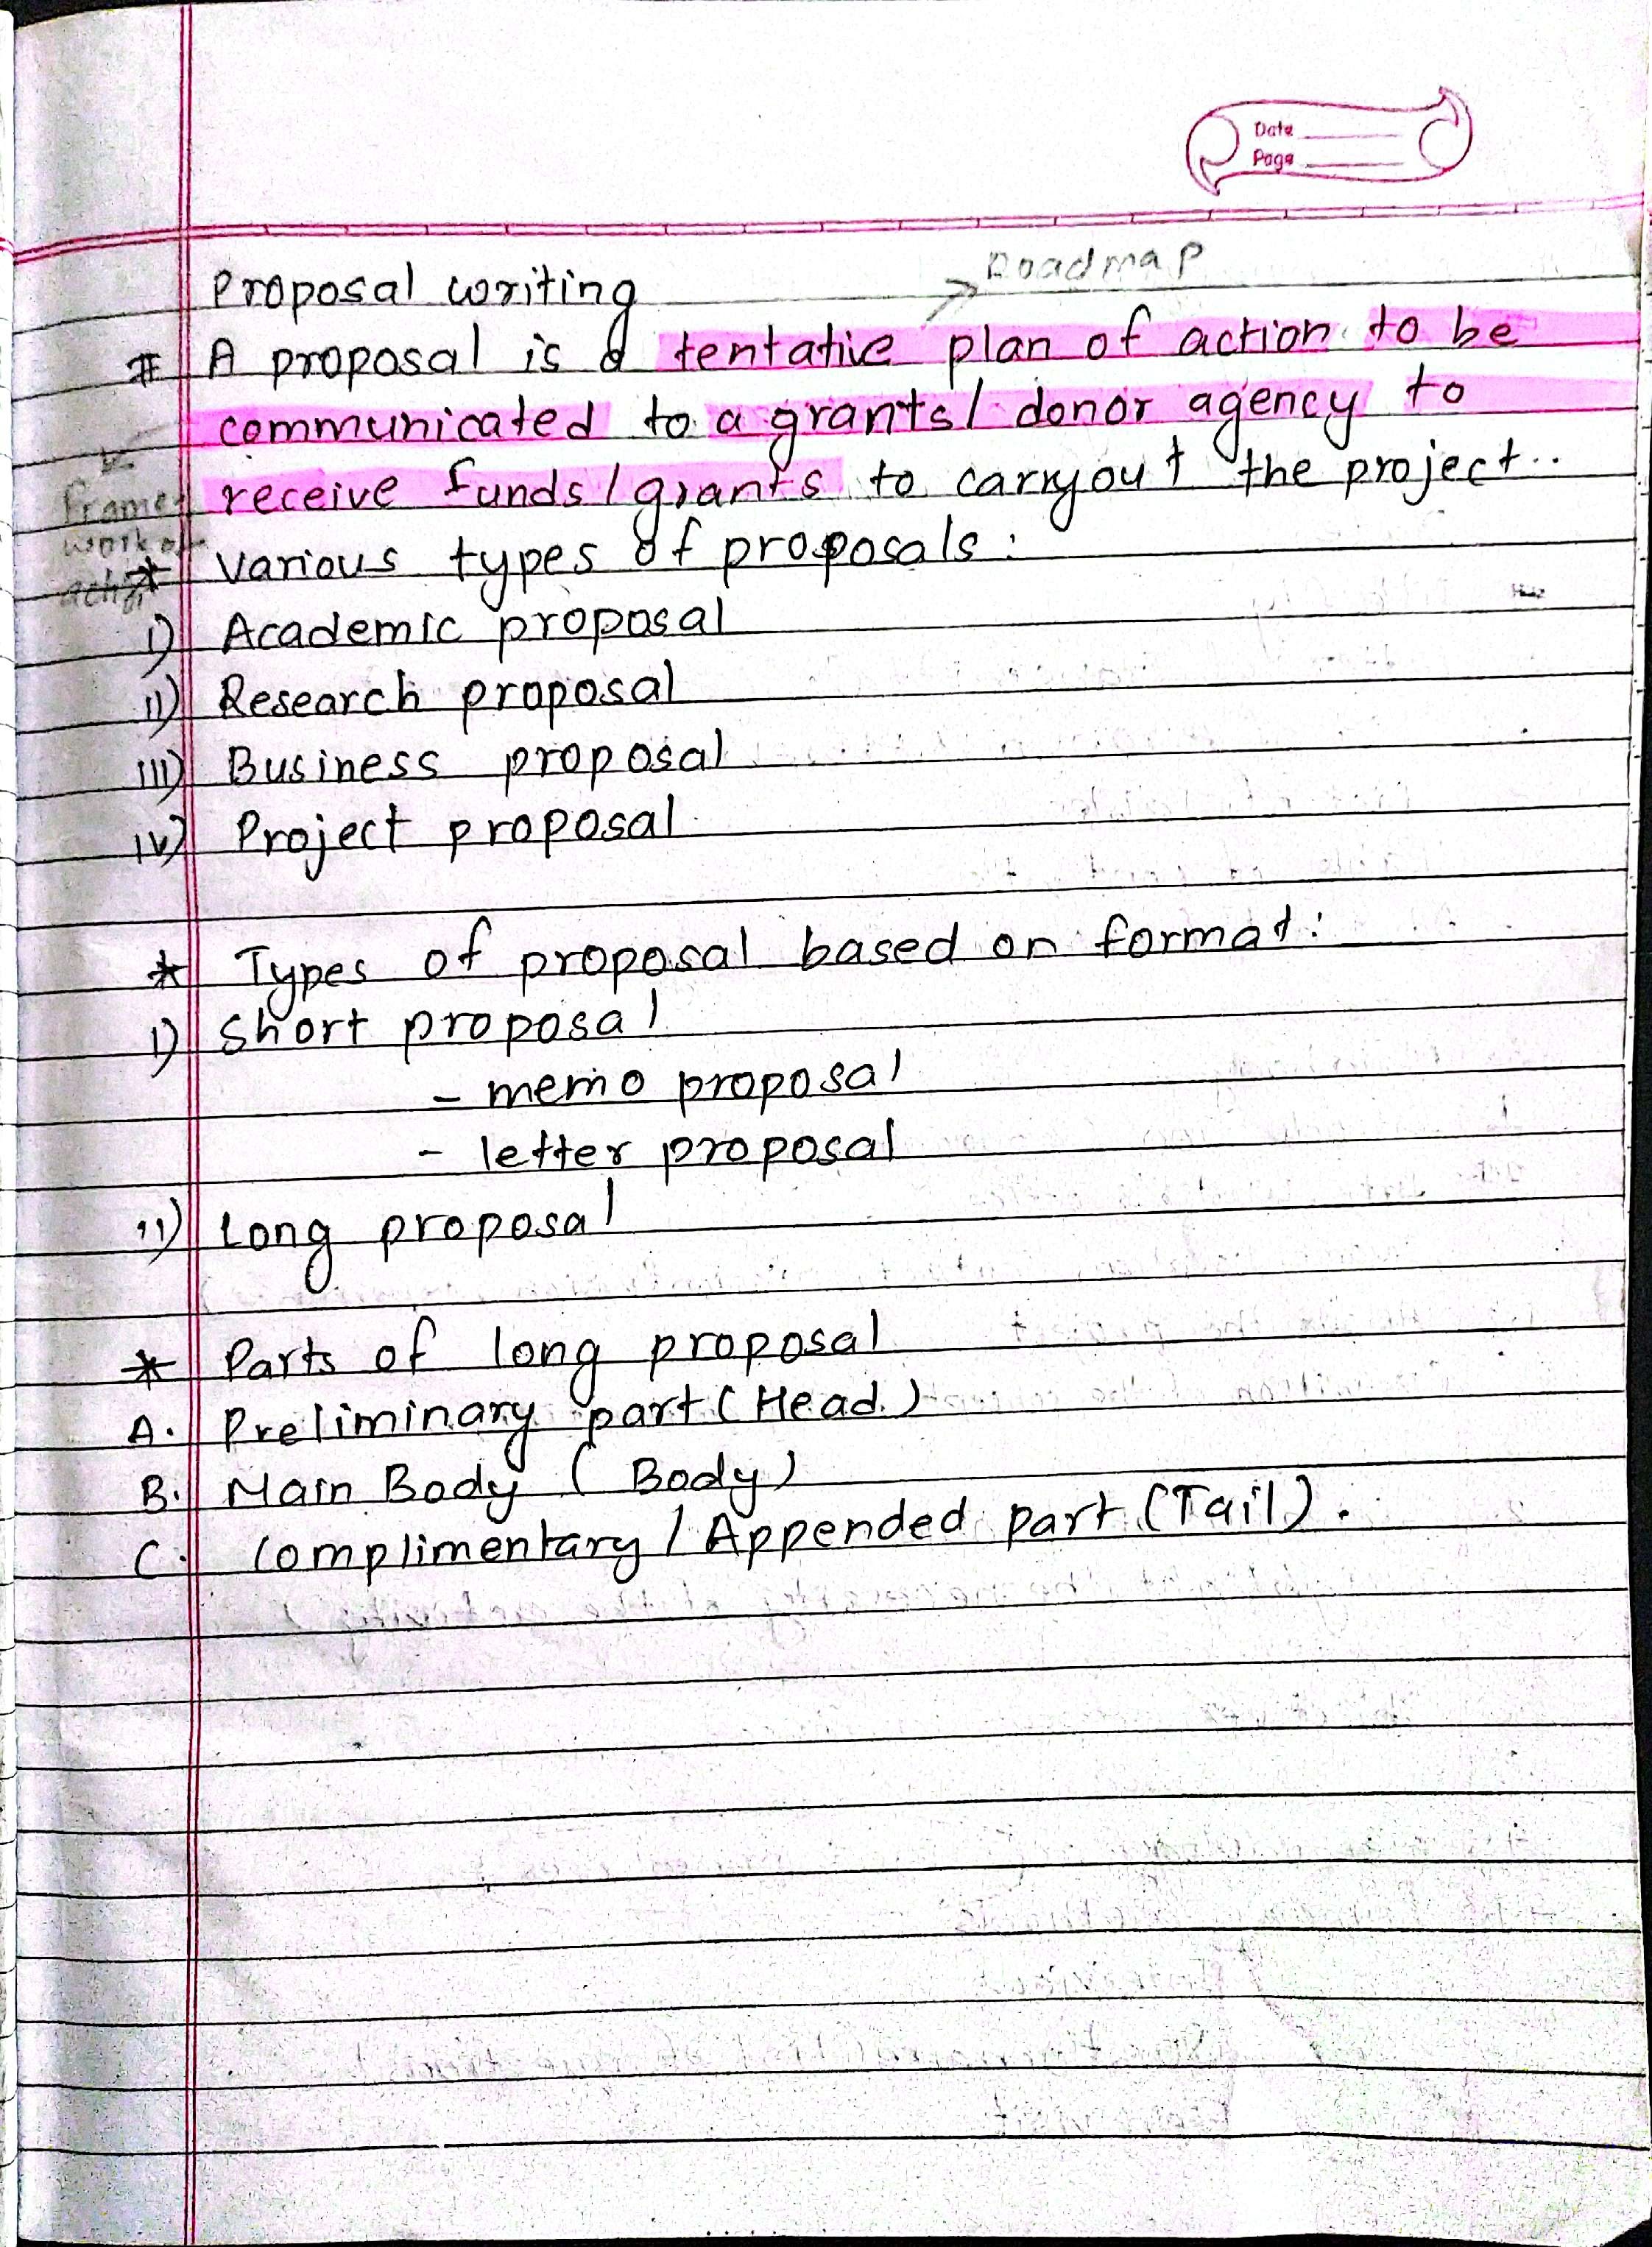 Date
Page
Roadmap
Proposal writing
# A proposal is a tentative plan of action to be
communicated to a grants/ donor agency to
receive funds/grants to carryout the project..
Frame
work of
* various types of proposals:
i) Academic proposal
ii) Research proposal
iii) Business proposal
iv) Project proposal
* Types of proposal based on format:
i) Short proposal
- memo proposal
- letter proposal
ii) Long proposal
* Parts of long proposal
A. Preliminary part (Head)
B. Main Body (Body)
C. Complimentary / Appended part (Tail).